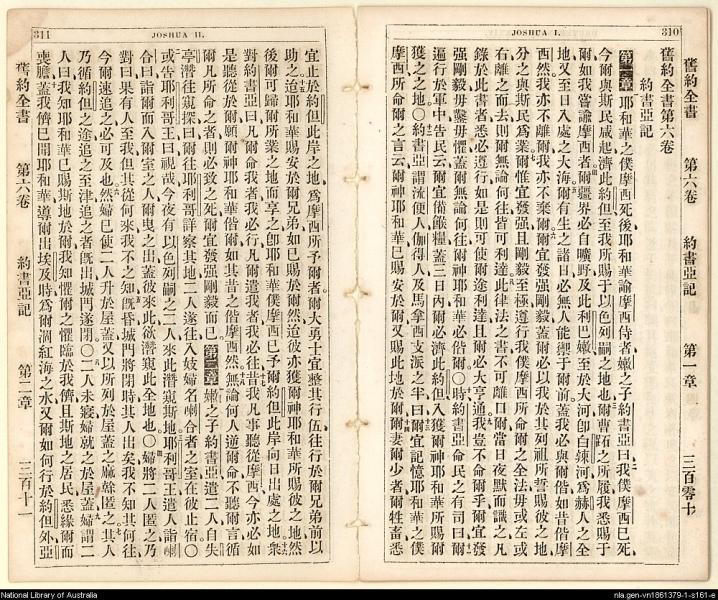 310
JOSHUA I.
舊約全書 第六卷 約書亞記 第一章 三百零十
舊約全書第六卷
約書亞記
第一章 耶和華之僕摩西死後耶和華諭摩西侍者嫩之子約書亞曰我僕摩西已死
今爾與斯民咸起濟此約但至我所賜于以色列嗣之地也爾曹跖之所履我悉賜于
爾如我嘗諭摩西者爾疆界必自曠野及此利巴嫩至於大河卽百辣河爲赫人之全
地又至日入處之大海爾有生之諸日必無人能禦于爾前蓋我必與爾偕如昔偕摩
西然我亦不離爾我亦不棄爾爾宜發强剛毅爾必以我於其列祖所誓賜彼之地
分之與斯民爲業爾惟宜發强且剛毅至極遵行我僕摩西所命爾之全法毋或左或
右離之而去則爾無論何往皆可利達此律法之書不可離口爾當日夜默而識之凡
錄於此書者悉必遵行如是則可使爾途利達且爾必大亨通我豈不命爾乎爾宜發
强剛毅毋驚毋懼蓋爾無論何往爾神耶和華必偕爾〇時約書亞命民之有司曰爾
遍行於軍中告民云爾宜備餱糧蓋三日內爾必濟此約但入獲爾神耶和華所賜爾
獲之之地〇約書亞謂流便人伽得人及馬拿西支派之半曰爾宜記憶耶和華之僕
摩西所命爾之言云爾神耶和華已賜安於爾又賜此地於爾爾妻爾少者爾牲畜悉
311
JOSHUA II.
宜止於約但此岸之地爲摩西所予爾者爾大勇士宜整其行伍往行於爾兄弟前以
助之迨耶和華賜安於爾兄弟如已賜於爾然迨彼亦獲爾神耶和華所賜彼之地然
後爾可歸爾所業之地而享之卽耶和華僕摩西已予爾約但此岸向日出處之地衆
對約書亞曰凡爾命我者我必行凡爾遣我者我必往昔我凡事聽從摩西今亦必如
是聽從於爾願爾神耶和華偕爾如其昔之偕摩西然無論何人逆爾命不聽爾言循
爾凡所命之者則必致之死爾宜發强剛毅而已 第二章 嫩之子約書亞遣二人自失
亭潛往窺探曰爾往耶利哥詳察其地二人遂往入妓婦名喇合者之室在彼止宿〇
或告耶利哥王曰視哉今夜有以色列嗣之二人來此潛窺斯地耶利哥王遣人詣喇
合曰詣爾而入爾室之人爾曳之出蓋彼來此欲潛窺此全地也〇婦將二人匿之乃
對曰果有人至我但其從何來我不之知旣昏城門將閉時其人出矣我不知其何往
今爾速追之必可及也然婦已使二人升於屋蓋又以所列於屋蓋之麻匿之其人
乃循約但之途追之至津追之者旣出城門遂閉〇二人未寢婦就之於屋蓋婦謂二
人曰我知耶和華已賜斯地於爾我知懼爾之懼臨於我儕且斯地之居民悉緣爾而
喪膽蓋我儕已聞耶和華導爾出埃及時爲爾涸紅海之水又爾如何行於約但外亞
舊約全書 第六卷 約書亞記 第二章 三百十一
National Library of Australia
nla.gen-vn1861379-1-s161-e